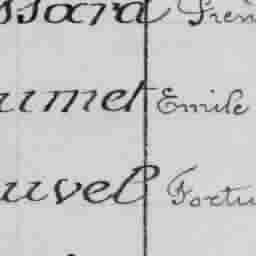 ssard Fren
umet Emile
uvel Fortu